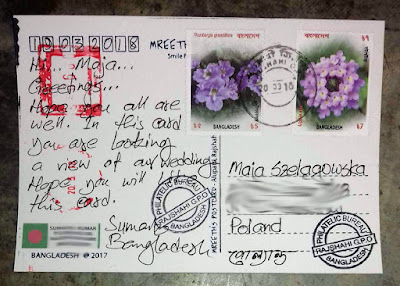 10032018
Hi... Maja...
Greetings...
Hope you all are
well. In this card
you are looking
a view of our wedding.
Hope you will like
this card.
Suman
Bangladesh
SUMAN KUMAR
BANGLADESH @ 2017
MREETHS POSTCARD
Thunbergia grandiflora
বাংলাদেশ
BANGLADESH
৳5
বাংলাদেশ
৳৭
BANGLADESH
৳7
20 03 18
Maja Szelągowska
Poland
পোল্যান্ড
PHILATELIC BUREAU
RAJSHAHI G.P.O
BANGLADESH
PHILATELIC BUREAU
RAJSHAHI G.P.O
BANGLADESH